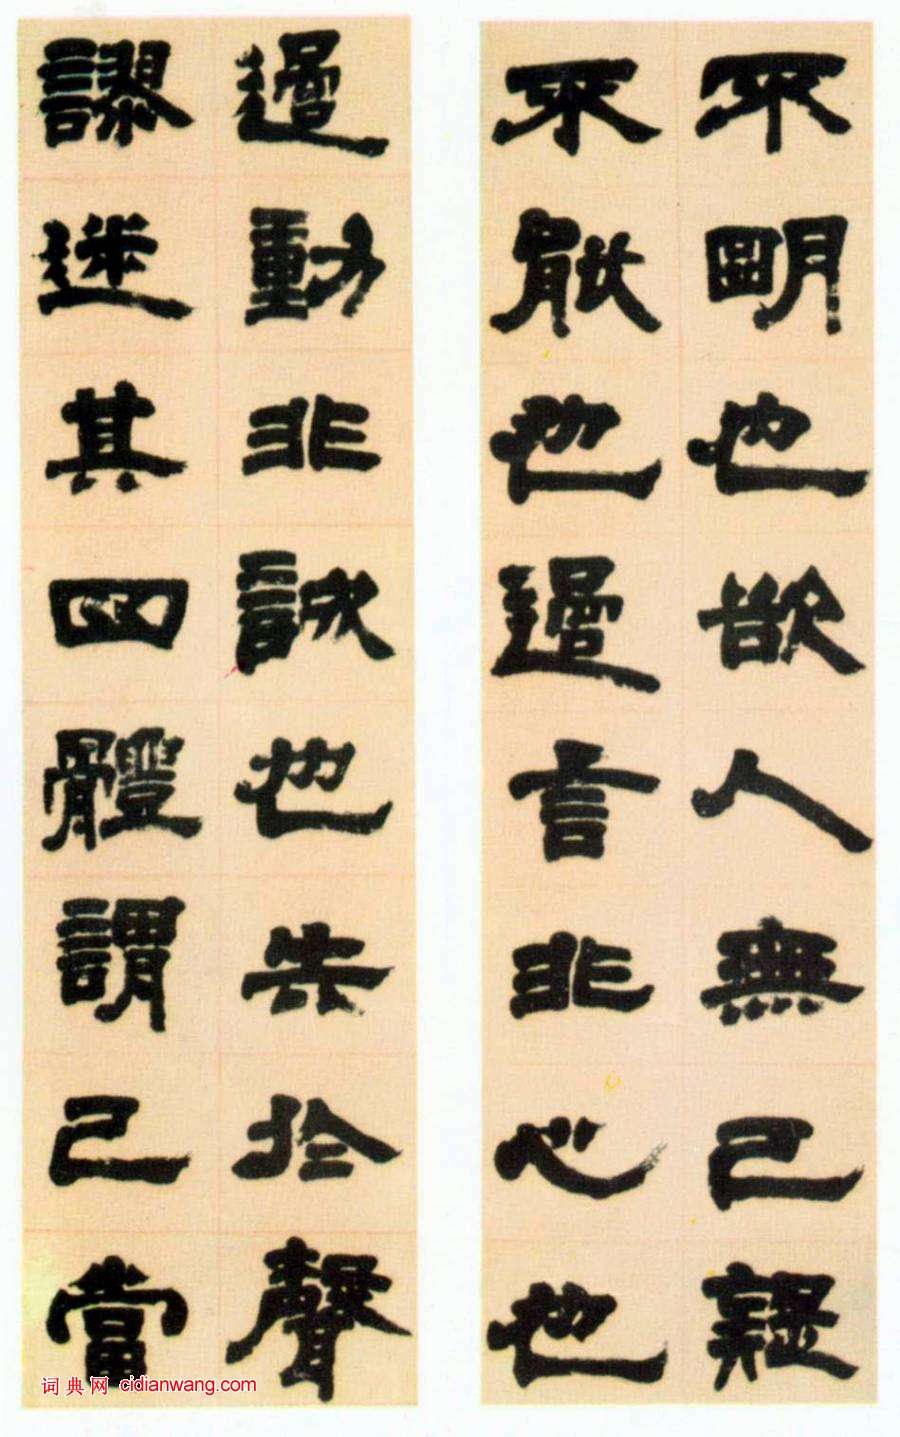 不明也欲人無己疑
不能也過言非心也
過動非誠也失於聲
謬迷其四體謂己當
词典网 cidianwang.com